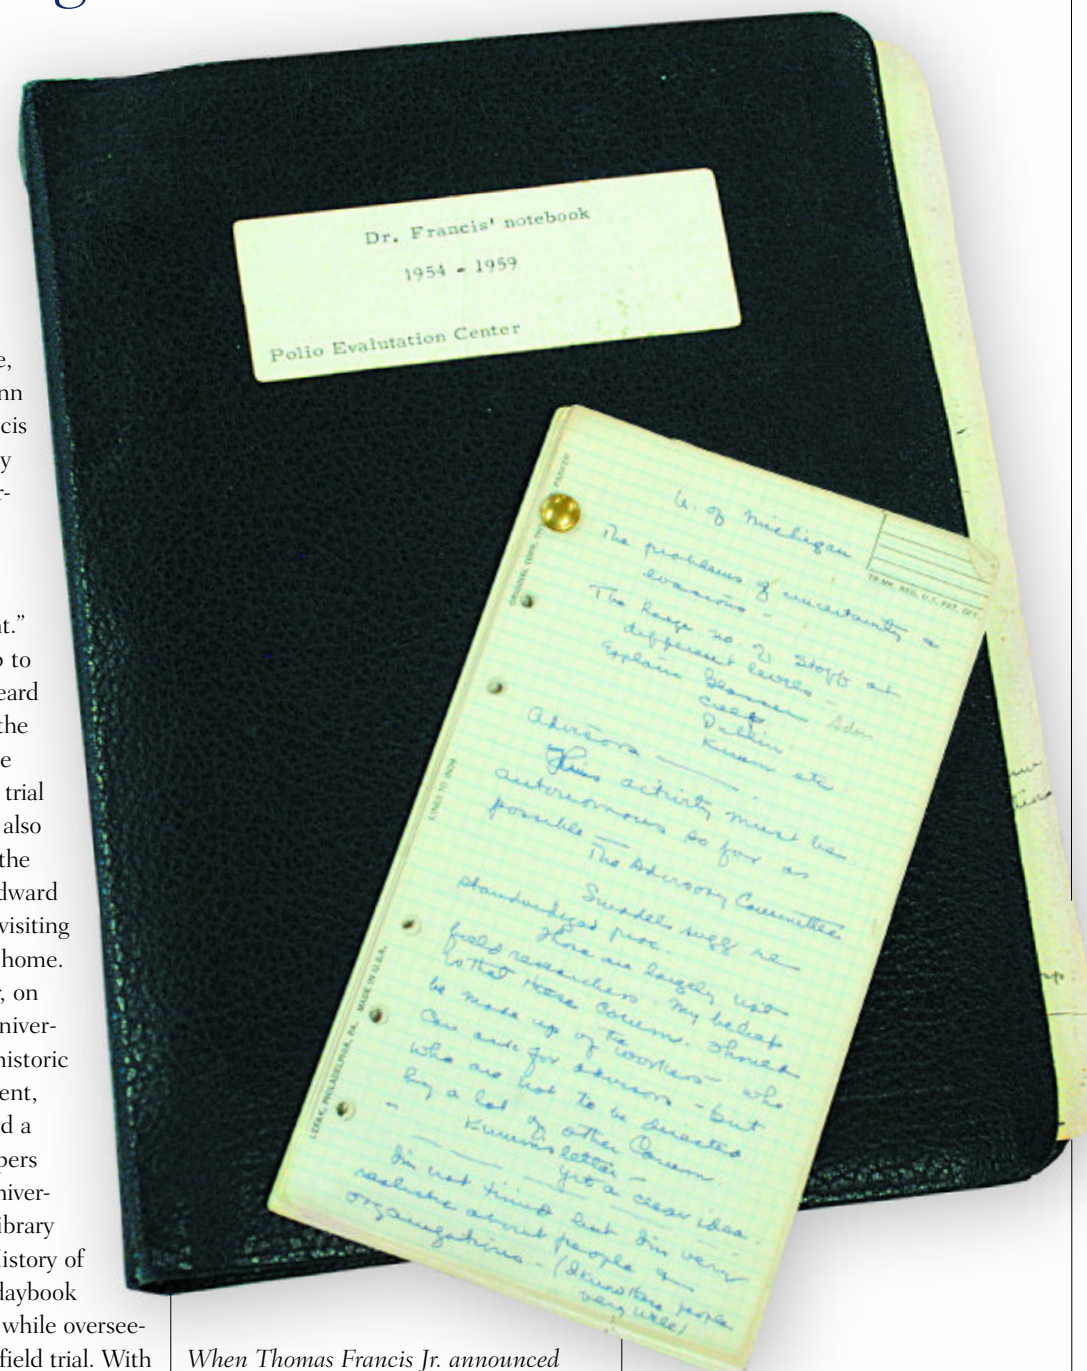 g
e,
nn
cis
y
r-
t.”
o to
eard
the
e
trial
also
the
dward
visiting
home.
, on
niver-
historic
ent,
d a
pers
niver-
ibrary
istory of
daybook
while oversee-
field trial. With
Dr. Francis' notebook
1954 - 1959
Polio Evalutation Center
PARKER
TR.MK. REG. U.S. PAT. OFF.
LINES TO INCH
LEFAX, PHILADELPHIA, PA. MADE IN U.S.A.
U. of Michigan
The problems of uncertainty &
evasions -
The large no. of staff at
different levels -
Explain
Dublin
etc
Advisors
This activity must be
autonomous so far as
possible
The Advisory Committee
sugg re
standardized proc.
These are largely not
field researchers. My belief
is that these Comm. should
be made up of the workers who
can ask for advisors - but
who are not to be directed
by a lot of other Comm.
letter -
Yet a clear idea.
I'm not timid but I'm very
realistic about people &
organizations - (I know these people
very well)
When Thomas Francis Jr. announced